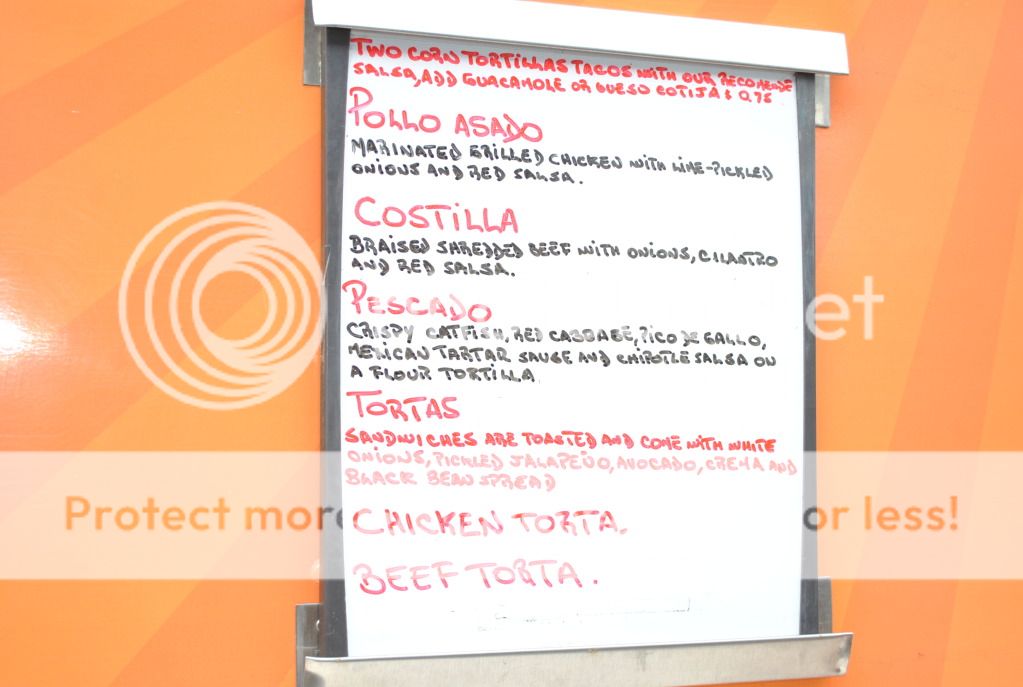 TWO CORN TORTILLAS TACOS WITH OUR RECOMENDE
SALSA, ADD GUACAMOLE OR QUESO COTIJA $ 0.75
POLLO ASADO
MARINATED GRILLED CHICKEN WITH LIME-PICKLED
ONIONS AND RED SALSA.
COSTILLA
BRAISED SHREDDED BEEF WITH ONIONS, CILANTRO
AND RED SALSA.
PESCADO
CRISPY CATFISH, RED CABBAGE, PICO DE GALLO,
MEXICAN TARTAR SAUSE AND CHIPOTLE SALSA ON
A FLOUR TORTILLA
TORTAS
SANDWICHES ARE TOASTED AND COME WITH WHITE
ONIONS, PICKLED JALAPEÑO, AVOCADO, CREMA AND
BLACK BEAN SPREAD
CHICKEN TORTA.
BEEF TORTA.
et
Protect more or less!